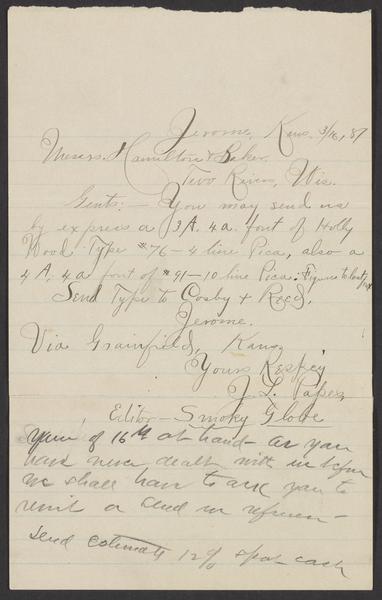 Jerome, Kans. 3/16, 87
Messrs. Hamilton & Baker.
Two Rivers, Wis.
Gents:— You may send us
by express a 3A. 4a. font of Holly
Wood Type #76 – 4 line Pica, also a
4 A. 4 a font of #91 – 10 line Pica.
Send Type to Cosby & Reed,
Jerome.
Via Grainfield, Kans.
Yours Respey
J. L. Papes,
Editor – Smoky Globe
Yours of 16th at hand – as you
have never dealt with us before
we shall have to ask you to
remit or send us referen –
send estimate 12% spot cash